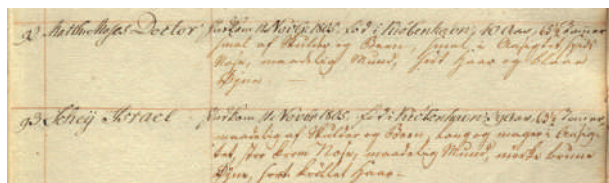 92 Matthis Moses Doctor fød i Kiöbenhavn, 40 Aar, 63½ Tommer
smal af Skulder og Been, smal i Ansigtet, spids
Næse, maadelig Mund, sort Haar og blaae
Øyne.
93 Schey Israel Ankom 11 Novbr 1805. fød i Kiöbenhavn, Aar, 63½ Tommer
maadelig af Skulder og Been, lang og mager i Ansig-
tet, stor krom Næse, maadelig Mund, mørke brune
Øyne, sort krøllet Haar.